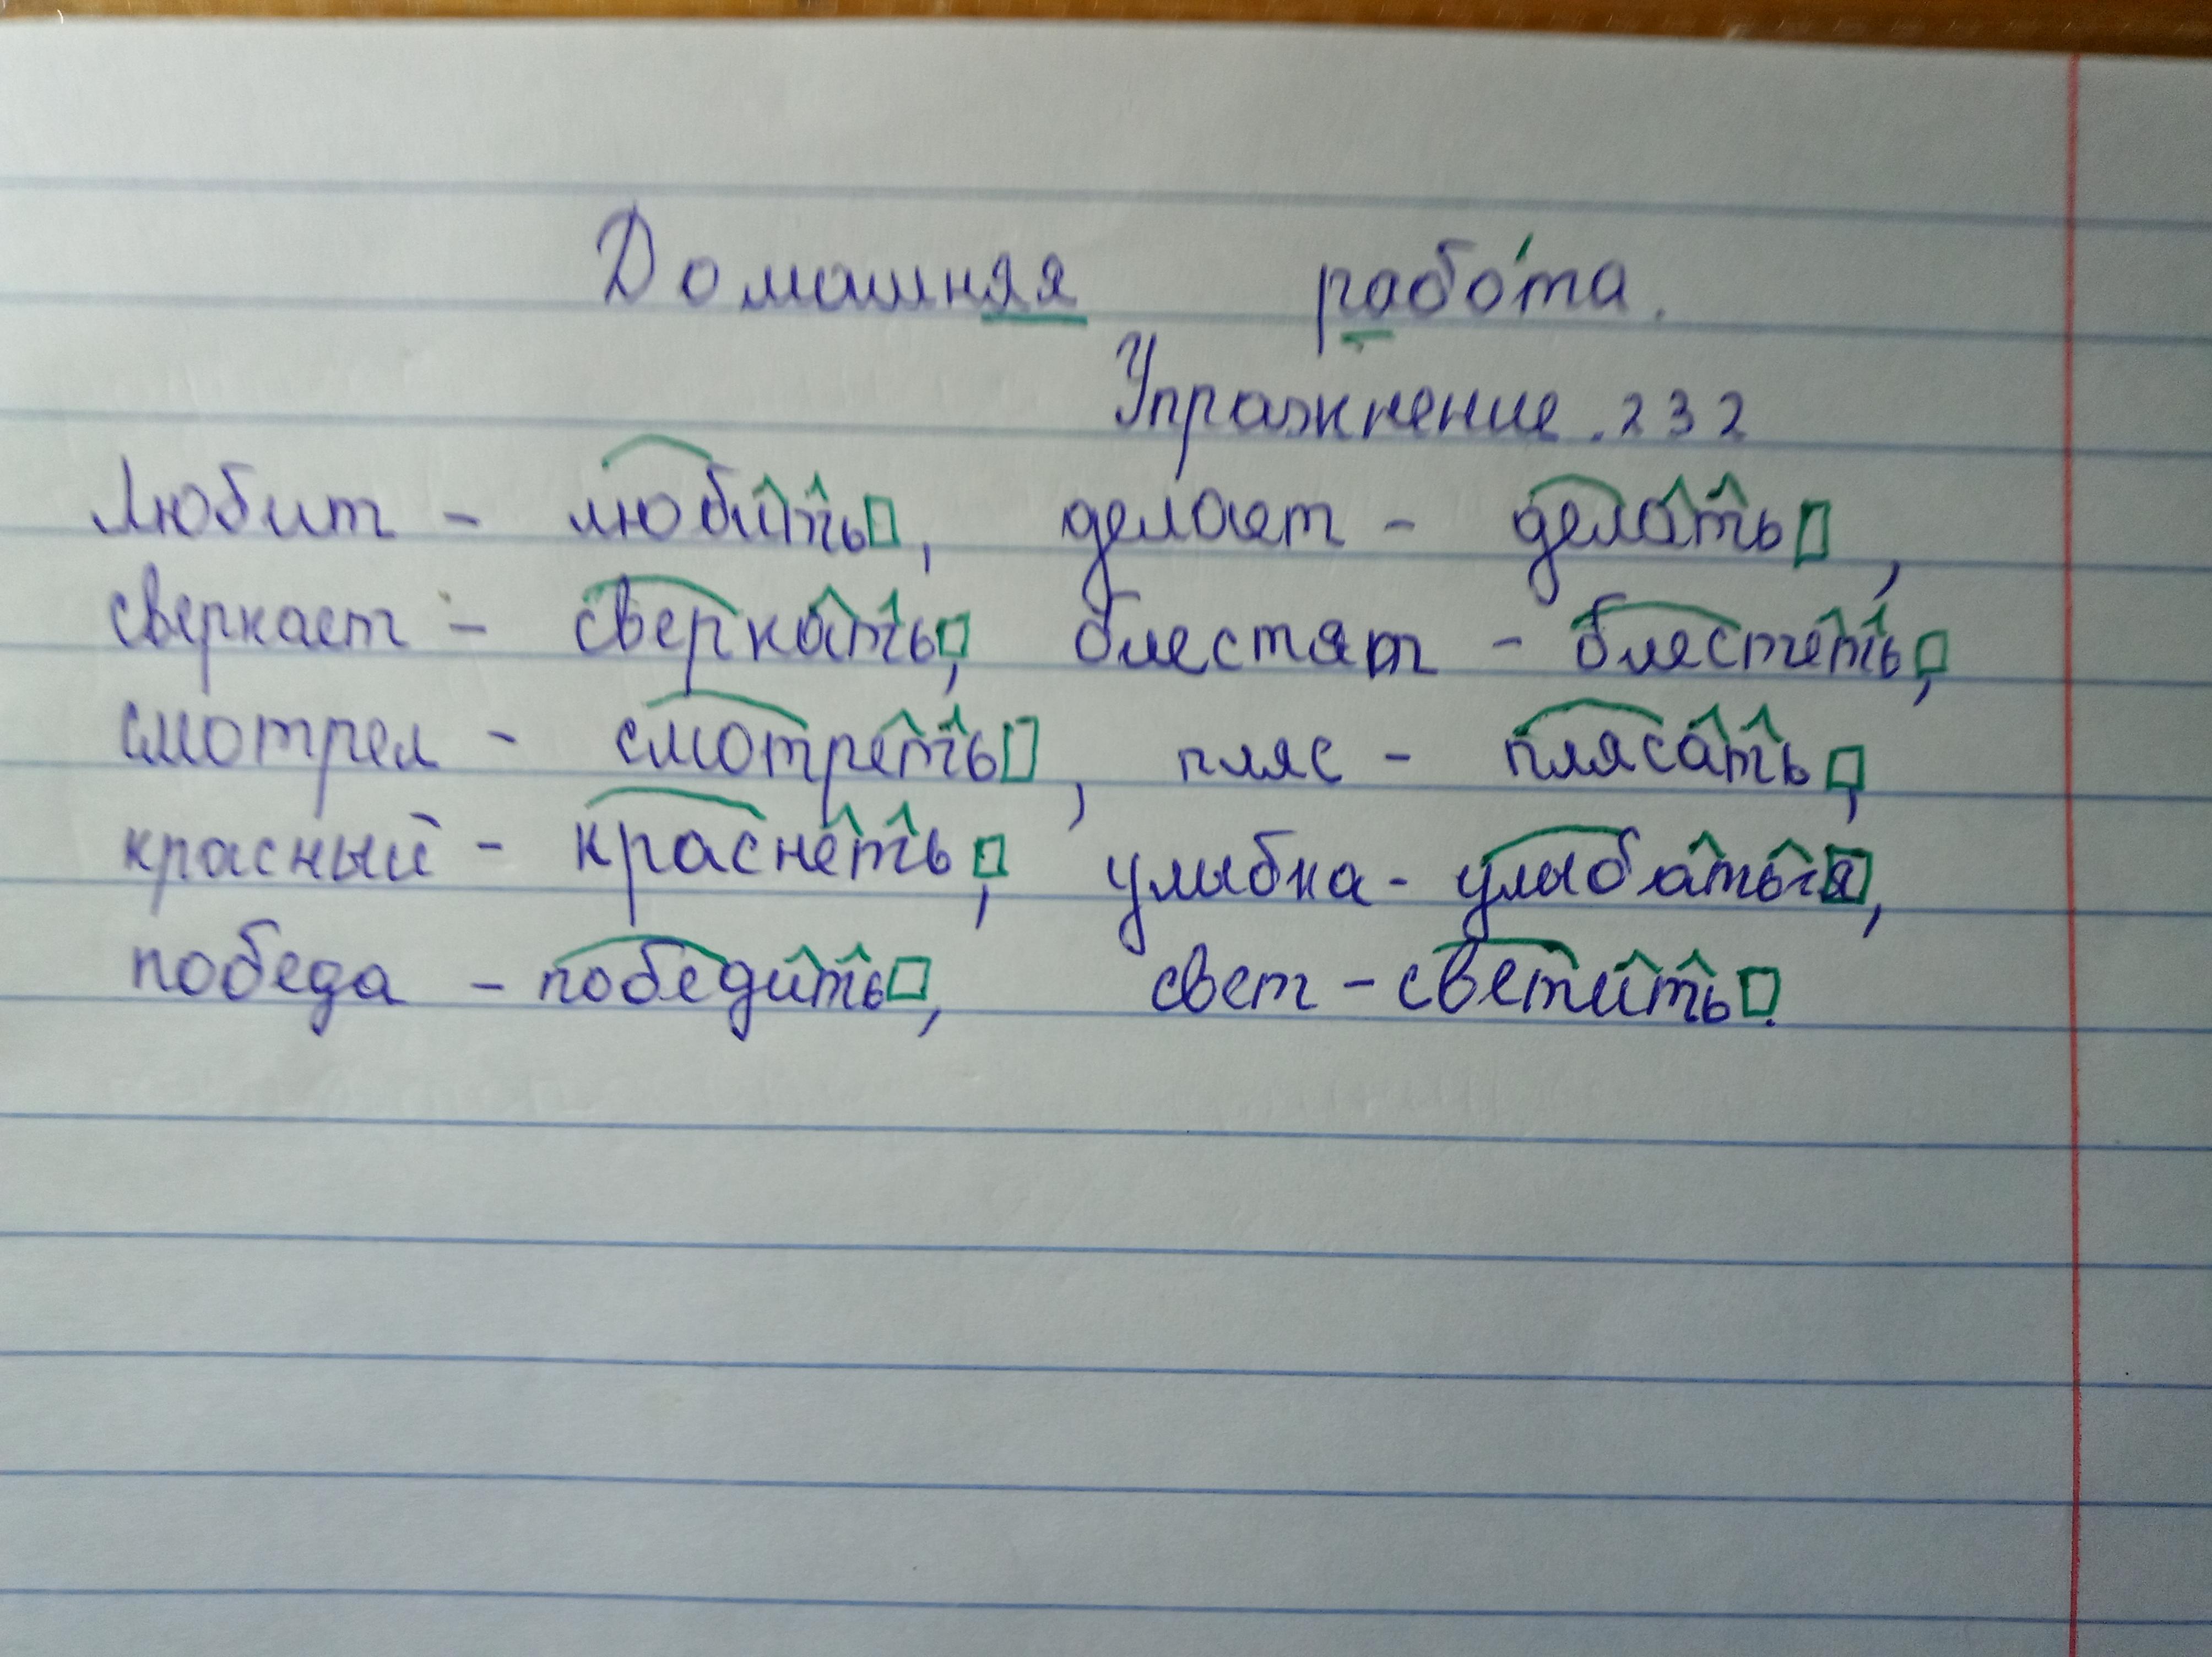 Домашняя работа.
Упражнение. 232
Любит - любить, делает - делать,
сверкает - сверкать, блестят - блестеть,
смотрел - смотреть, пляс - плясать,
красный - краснеть, улыбка - улыбаться,
победа - победить, свет - светить.